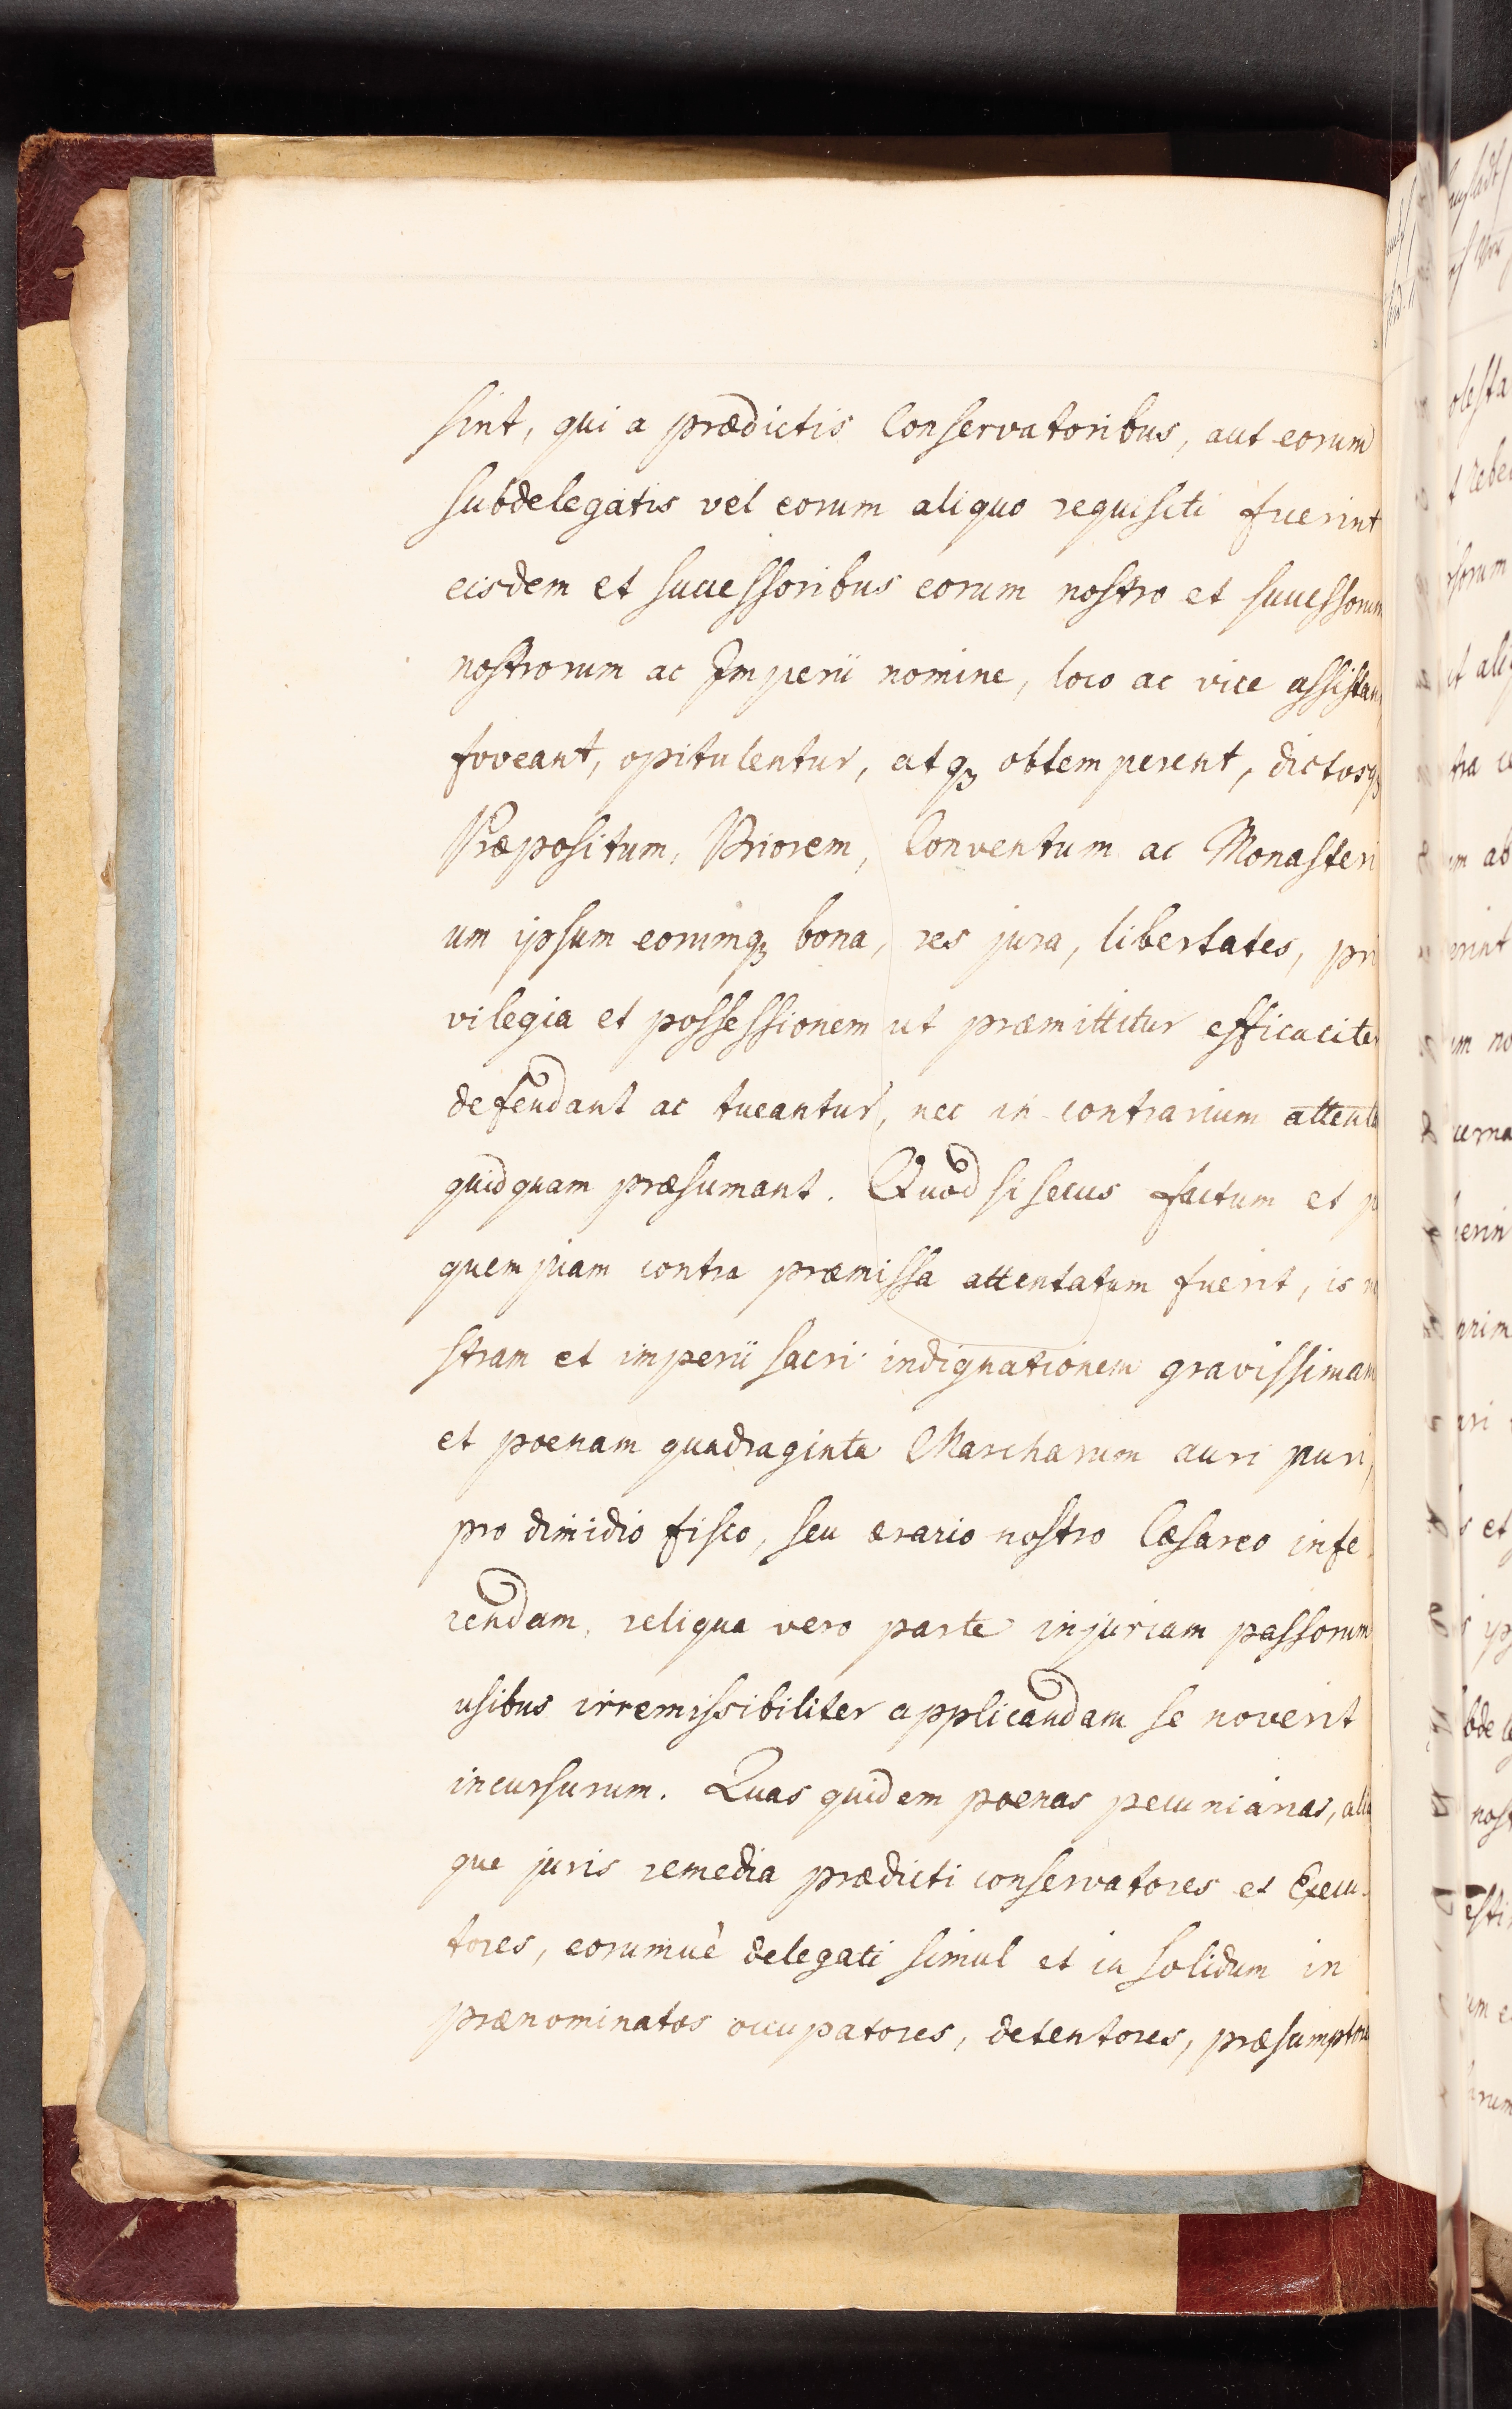 sint, qui a prædictis Conservatoribus, aut eorum
subdelegatis vel eorum aliquo requisiti fuerint
eisdem et successoribus eorum nostro et successorum
nostrorum ac Imperii nomine, loco ac vice assistan
foveant, opitulentur, atqꝫ obtemperent, dictosqꝫ
Præpositum, Priorem, Conventum ac Monasteri
um ipsum eorumqꝫ bona, res jura, libertates, pri
vilegia et possessionem ut præmittitur efficaciter
defendant ac tueantur, nec in contrarium attenta
quidquam præsumant. Quod si secus factum et p
quempiam contra præmissa attentatum fuerit, is no
stram et imperii sacri indignationem gravissimam
et poenam quadraginta Marcharum auri puri,
pro dimidio fisco, seu ærario nostro Cæsareo infe
rendam, reliqua vero parte injuriam passorum
usibus irremissibiliter applicandam se noverit
incursurum. Quas quidem poenas pecuniarias, alia
que juris remedia prædicti conservatores et Execu-
tores, eorumuè delegati simul et in solidum in
prænominatos occupatores, detentores, præsumptores